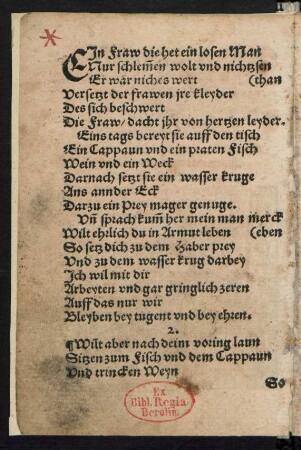 EIn Fraw die het ein losen Man
Nur schlem̄en wolt vnd nichtzsen
Er war niches wert (than
Versetzt der frawen jre kleyder
Des sich beschwert
Die Fraw/ dacht jhr von hertzen leyder.
Eins tags bereyt sie auff den tisch
Ein Cappaun vnd ein praten Fisch
Wein vnd ein Weck
Darnach setzt sie ein wasser kruge
Ans annder Eck
Darzu ein Prey mager genuge.
Vn̄ sprach kum̄ her mein man merck
Wilt ehrlich du in Armut leben (eben
So setz dich zu dem Haber prey
Vnd zu dem wasser krug darbey
Ich wil mit dir
Arbeyten vnd gar gringlich zeren
Auff das nur wir
Bleyben bey tugent vnd bey ehren.
2.
¶Wilt aber nach deim voring laun
Sitzen zum Fisch vnd dem Cappaun
Vnd trincken Weyn
So
Ex
Bibl. Regia
Berolin.